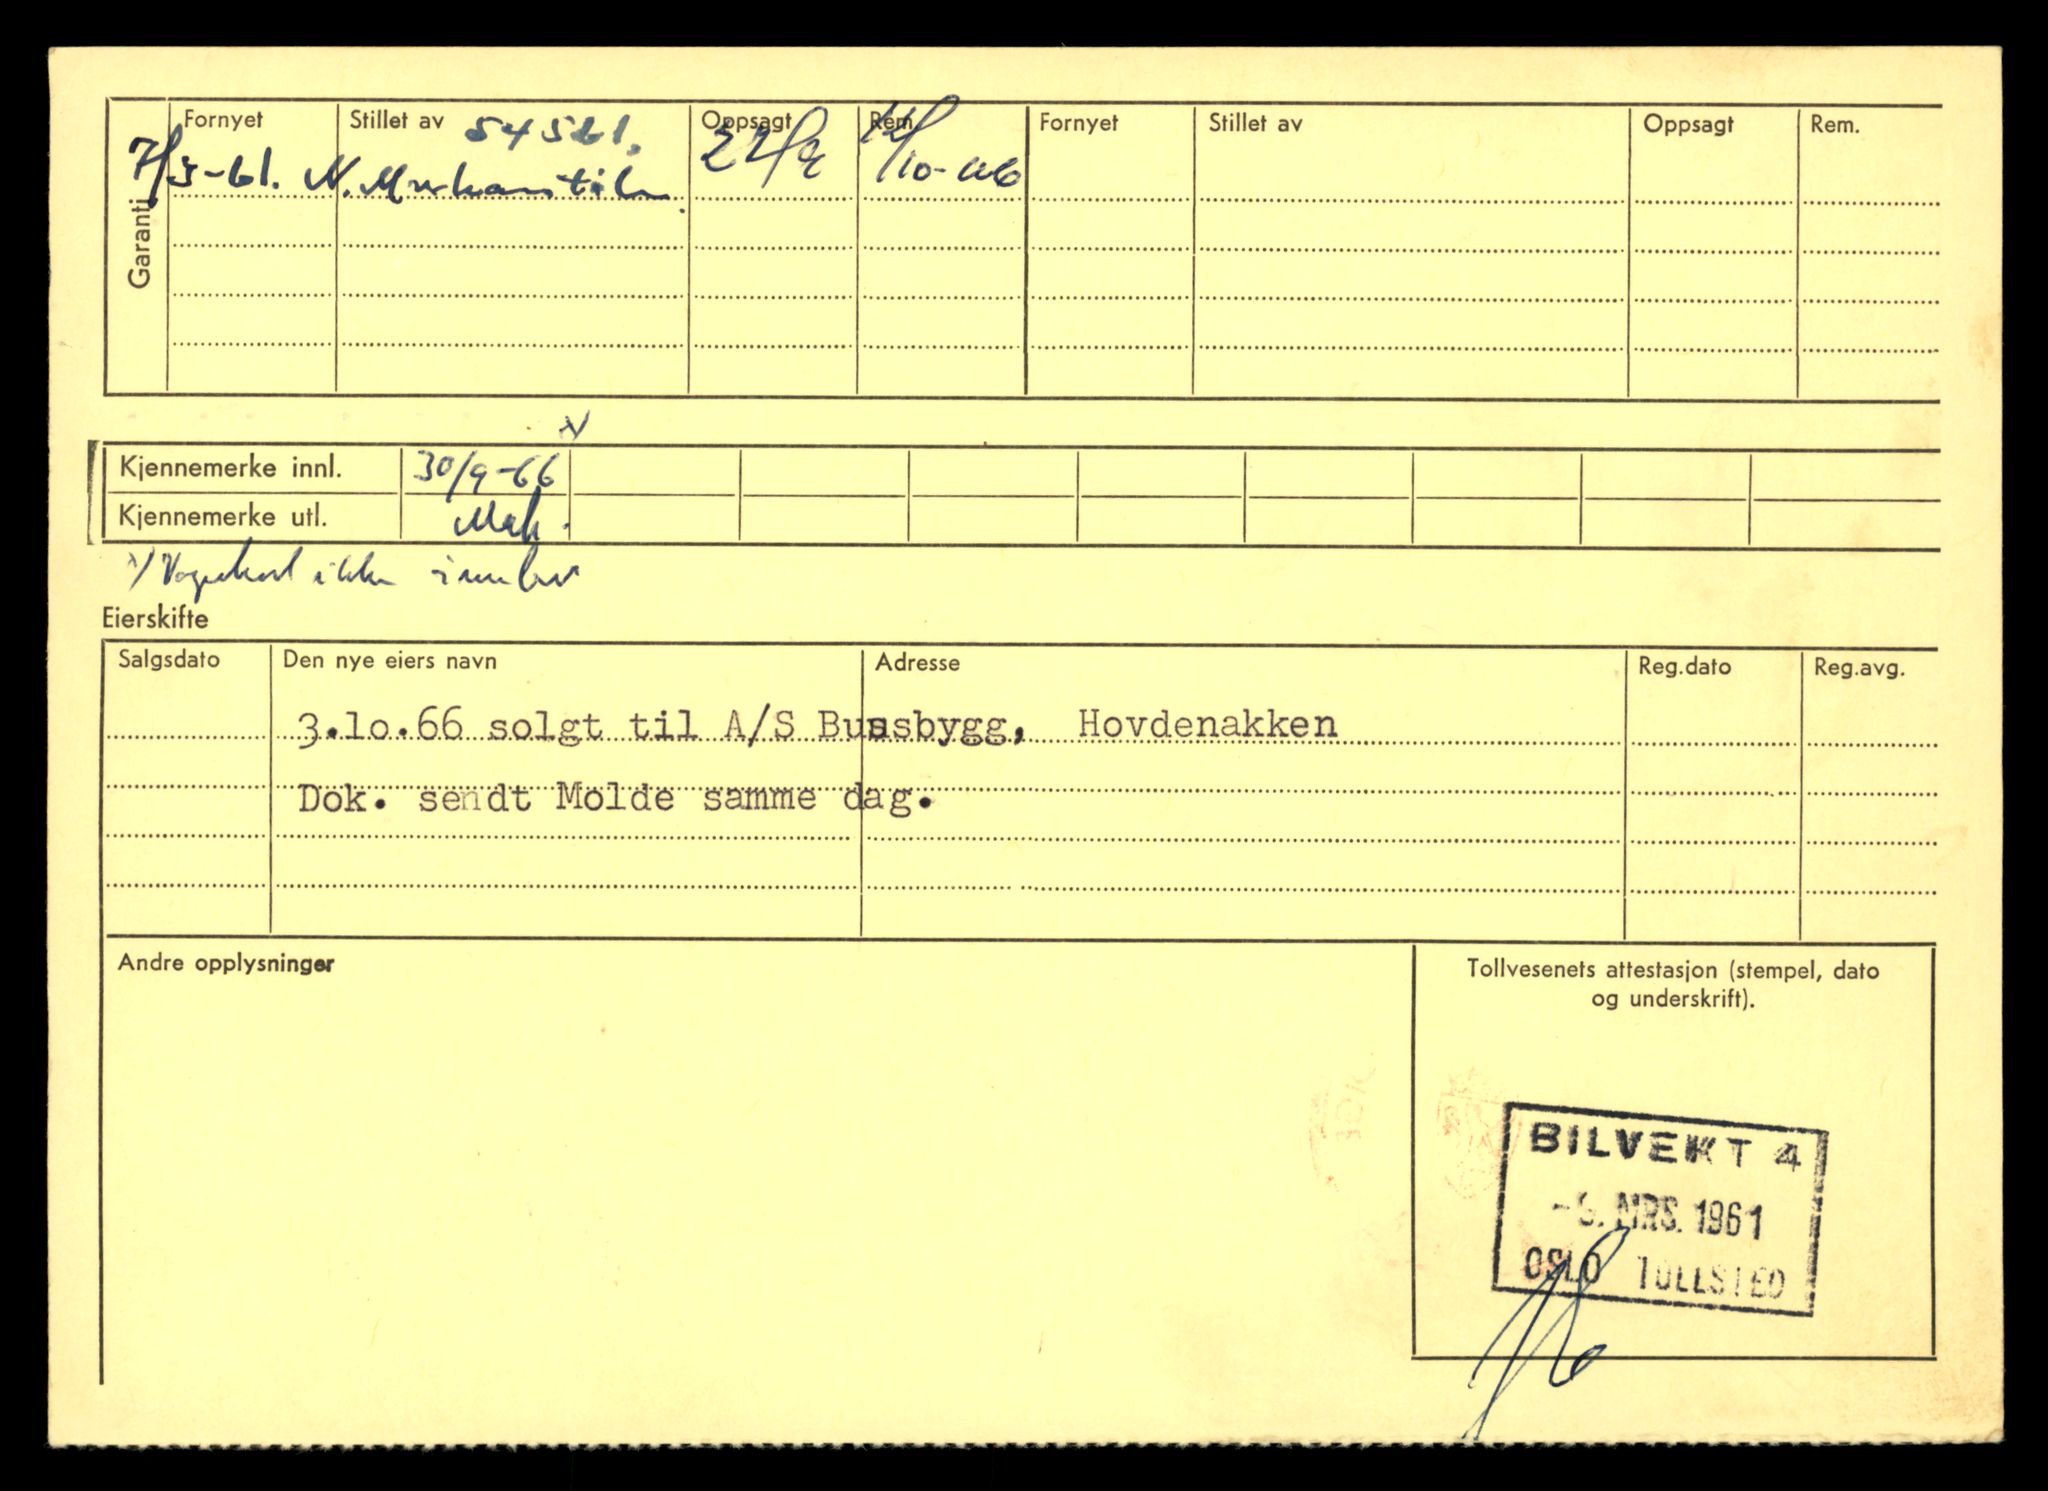 Garanti
Fornyet Stillet av Oppsagt Rem. Fornyet Stillet av Oppsagt Rem.
54561.
7/3-61. N. Merkantile. 22/9 /10-66
Kjennemerke innl. 30/9-66 x/
Kjennemerke utl. Mek.
x/ Vognkort ikke innlev
Eierskifte
Salgsdato Den nye eiers navn Adresse Reg.dato Reg.avg.
3.lo.66 solgt til A/S Bussbygg, Hovdenakken
Dok. sendt Molde samme dag.
Andre opplysninger
Tollvesenets attestasjon (stempel, dato
og underskrift).
BILVEKT 4
MRS. 1961
OSLO TOLLSTED